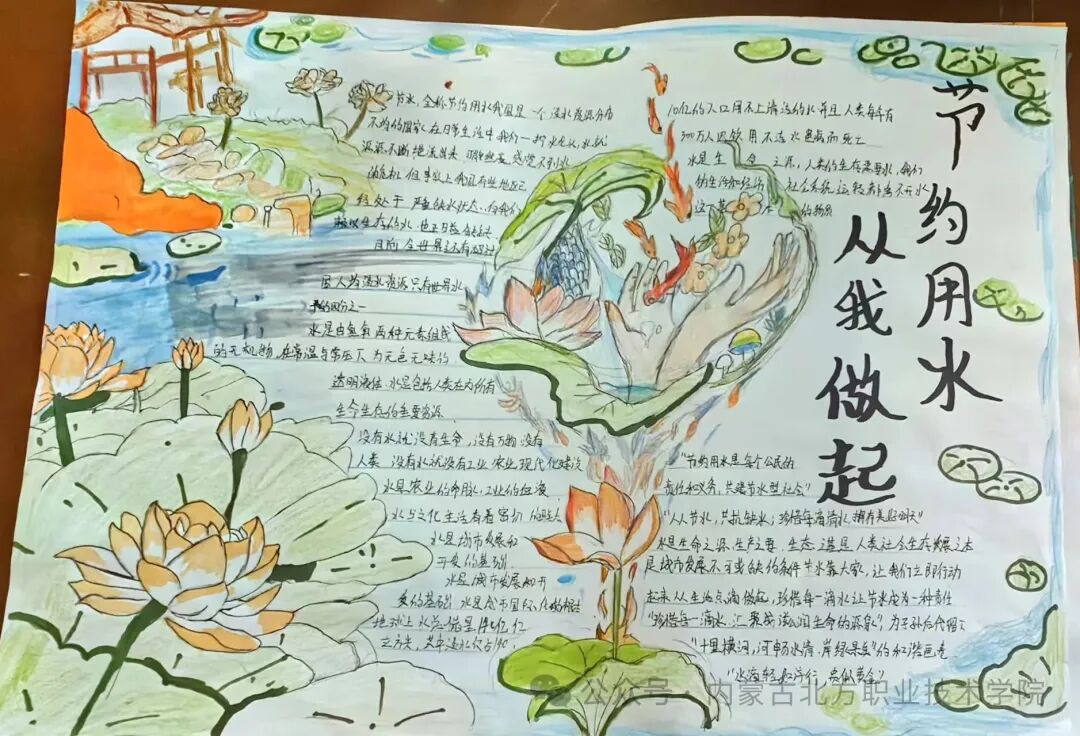 节约用水
从我做起
节水,全称节约用水我国是一个淡水资源分布
不均的国家,在日常生活中,我们一拧水龙头,水就
源源不断地流出来
的危机,但事实上我国有些地区已
经处于严重缺水状态
赖以生存的水,也正日益
目前全世界还有超过
国人均淡水资源只有世界水
的四分之一
水是由氢氧两种元素组成
的无机物,在常温常压下为无色无味的
透明液体,水是包括人类在内所有
生命生存的重要资源
没有水就没有生命,没有万物没有
人类 没有水就没有工业 农业 现代化建设
水是农业的命用,工业的血液
水与文化生活有着密切的联系
水是城市发展和
开发的基础
水是城市发展和开
发的基础 水是城市国际化的标志
地球上水总储量
立方米,其中淡水只占
10亿的人口用不上清洁的水并且人类每年有
300万人因饮用不洁水患病而死亡
水是生命之源,人类的生存需要水,我们
的生活和经济 社会系统运转都离不开水
的物质
"节约用水是每个公民的
责任和义务,共建节水型社会"
"人人节水,共抗缺水;珍惜每滴清水,拥有美好明天"
水是生命之源,生产之要,生态之基是人类社会生存发展之本
是城市发展不可或缺的条件节水靠大家,让我们立即行动
起来从生活点滴做起,珍惜每一滴水让节水成为一种责任
"珍惜每一滴水,汇聚成滋润生命的源泉",为子孙后代留下
"十里横河,河畅水清,岸绿景美"的和谐画卷
公众号·内蒙古北方职业技术学院